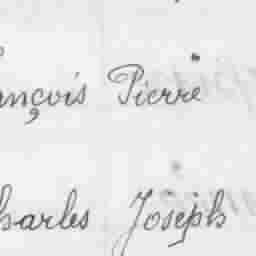 ançois Pierre
harles Joseph